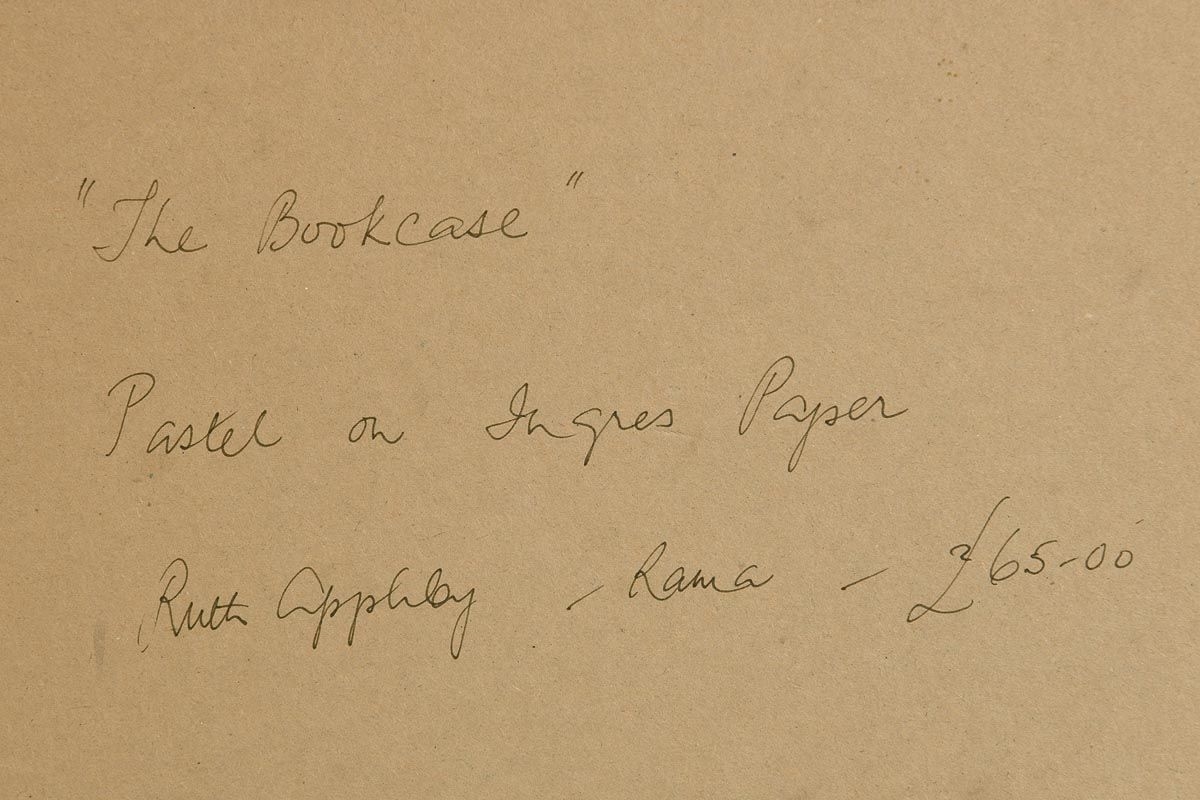 "The Bookcase"
Pastel on Ingres Paper
Ruth Appleby - Rama - £65-00